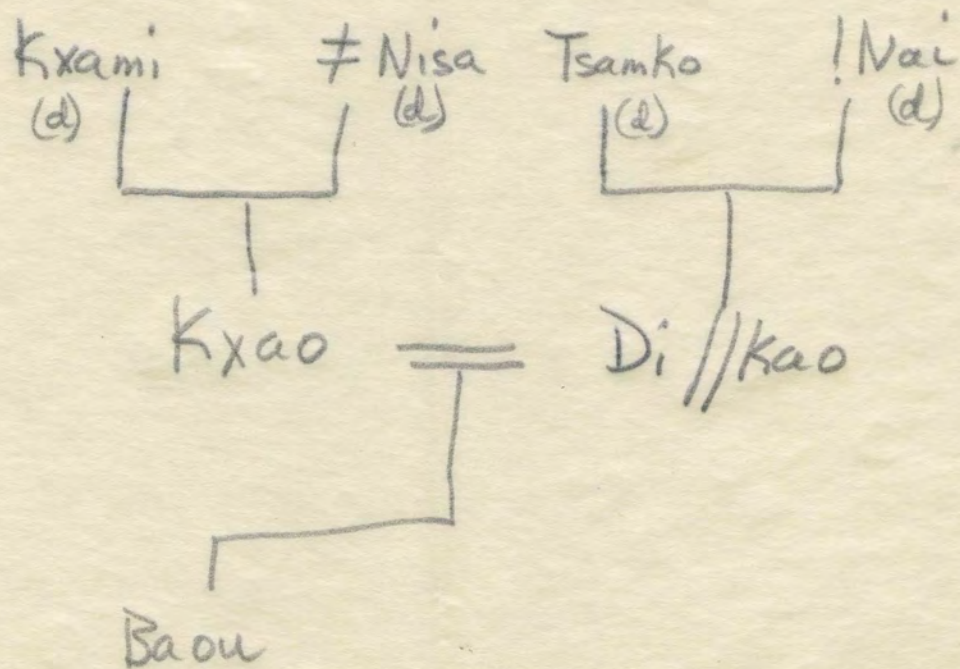 Kxami ≠Nisa Tsamko !Nai
(d) (d) (d) (d)
Kxao Di//kao
Baou